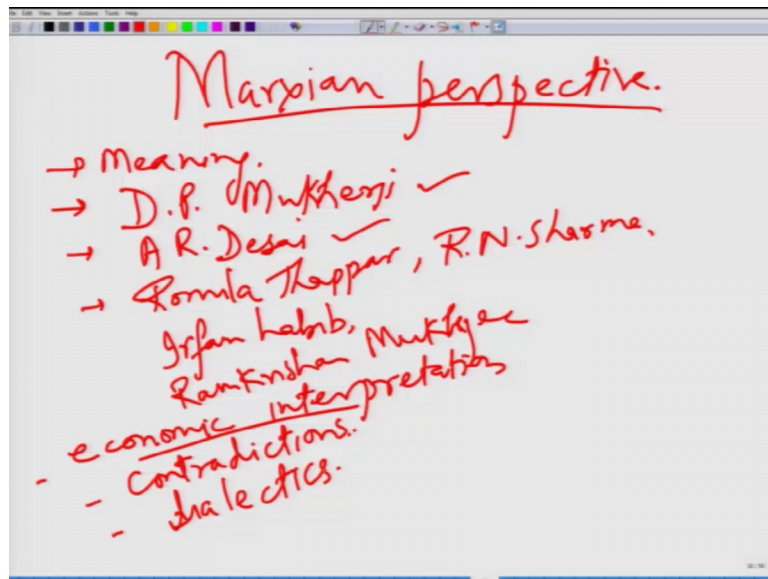 File Edit View Insert Actions Tools Help
Marxian perspective.
→ Meaning.
→ D.P. Mukherji ✓
→ A R. Desai ✓
→ Romila Thappar, R.N. Sharma,
Irfan habib,
Ramkrishan Mukhgee
- economic interpretation
- contradictions.
- dialectics.